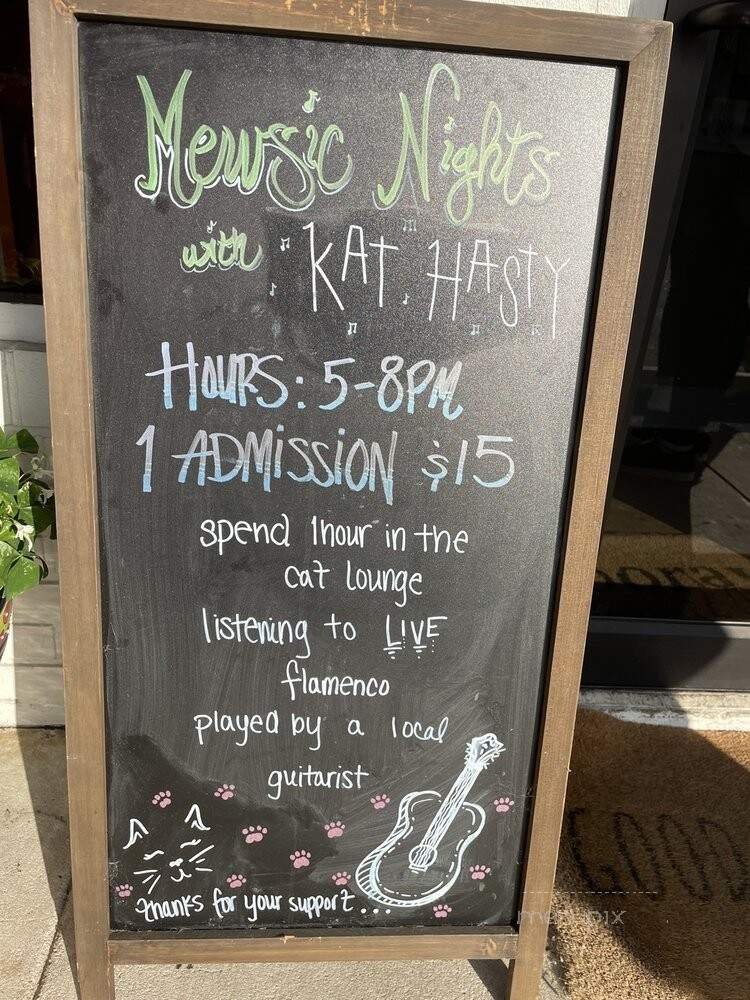 Mewsic Nights
with KAT HASTY
HOURS: 5-8PM
1 ADMISSION $15
spend 1hour in the
cat lounge
listening to LIVE
flamenco
played by a local
guitarist
thanks for your support...
menupix
GOOD